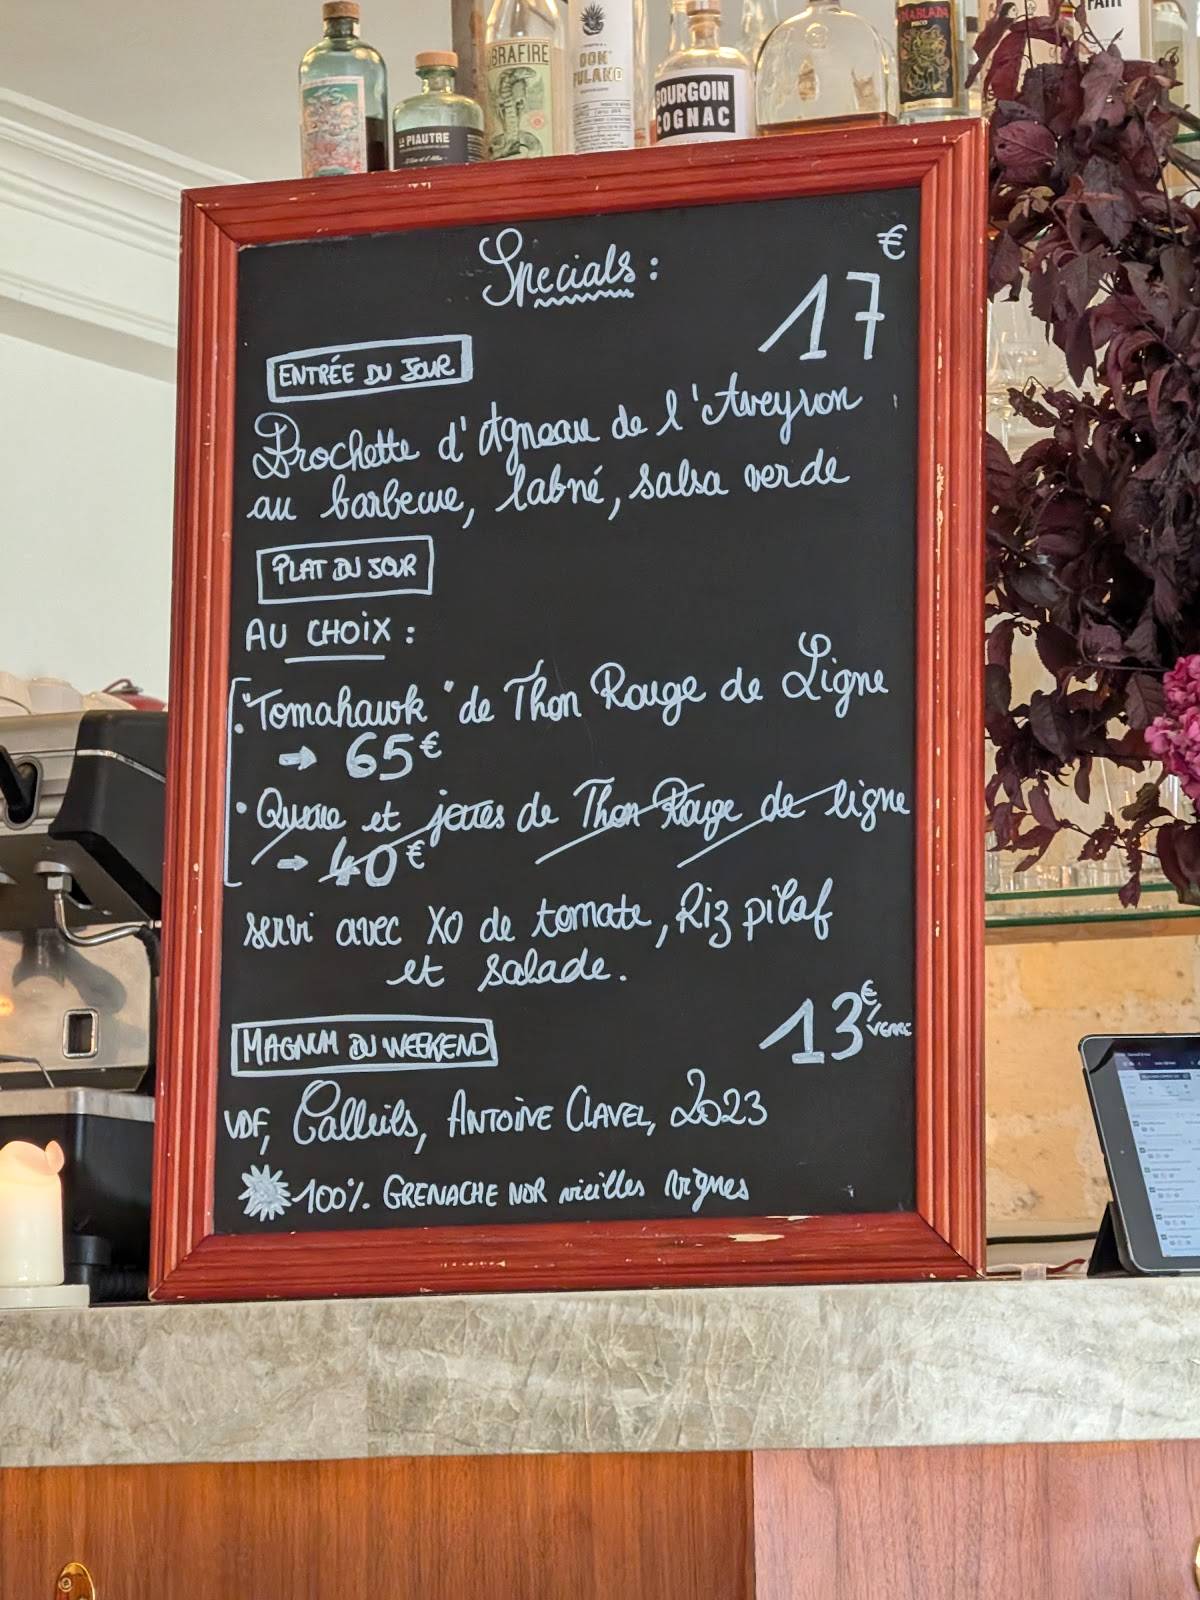 BRAFIRE
DON
FULANO
BOURGOIN
COGNAC
PIAUTRE
FAIR
Specials :
17 €
ENTRÉE DU JOUR
Brochette d'Agneau de l'Aveyron
au barbecue, labné, salsa verde
PLAT DU JOUR
AU CHOIX :
• "Tomahawk" de Thon Rouge de Ligne
→ 65€
• Queue et joues de Thon Rouge de ligne
→ 40€
servi avec XO de tomate, Riz pilaf
et salade.
MAGNUM DU WEEKEND
13€/VERRE
VDF, Calleils, ANTOINE CLAVEL, 2023
100% GRENACHE NOIR vieilles vignes